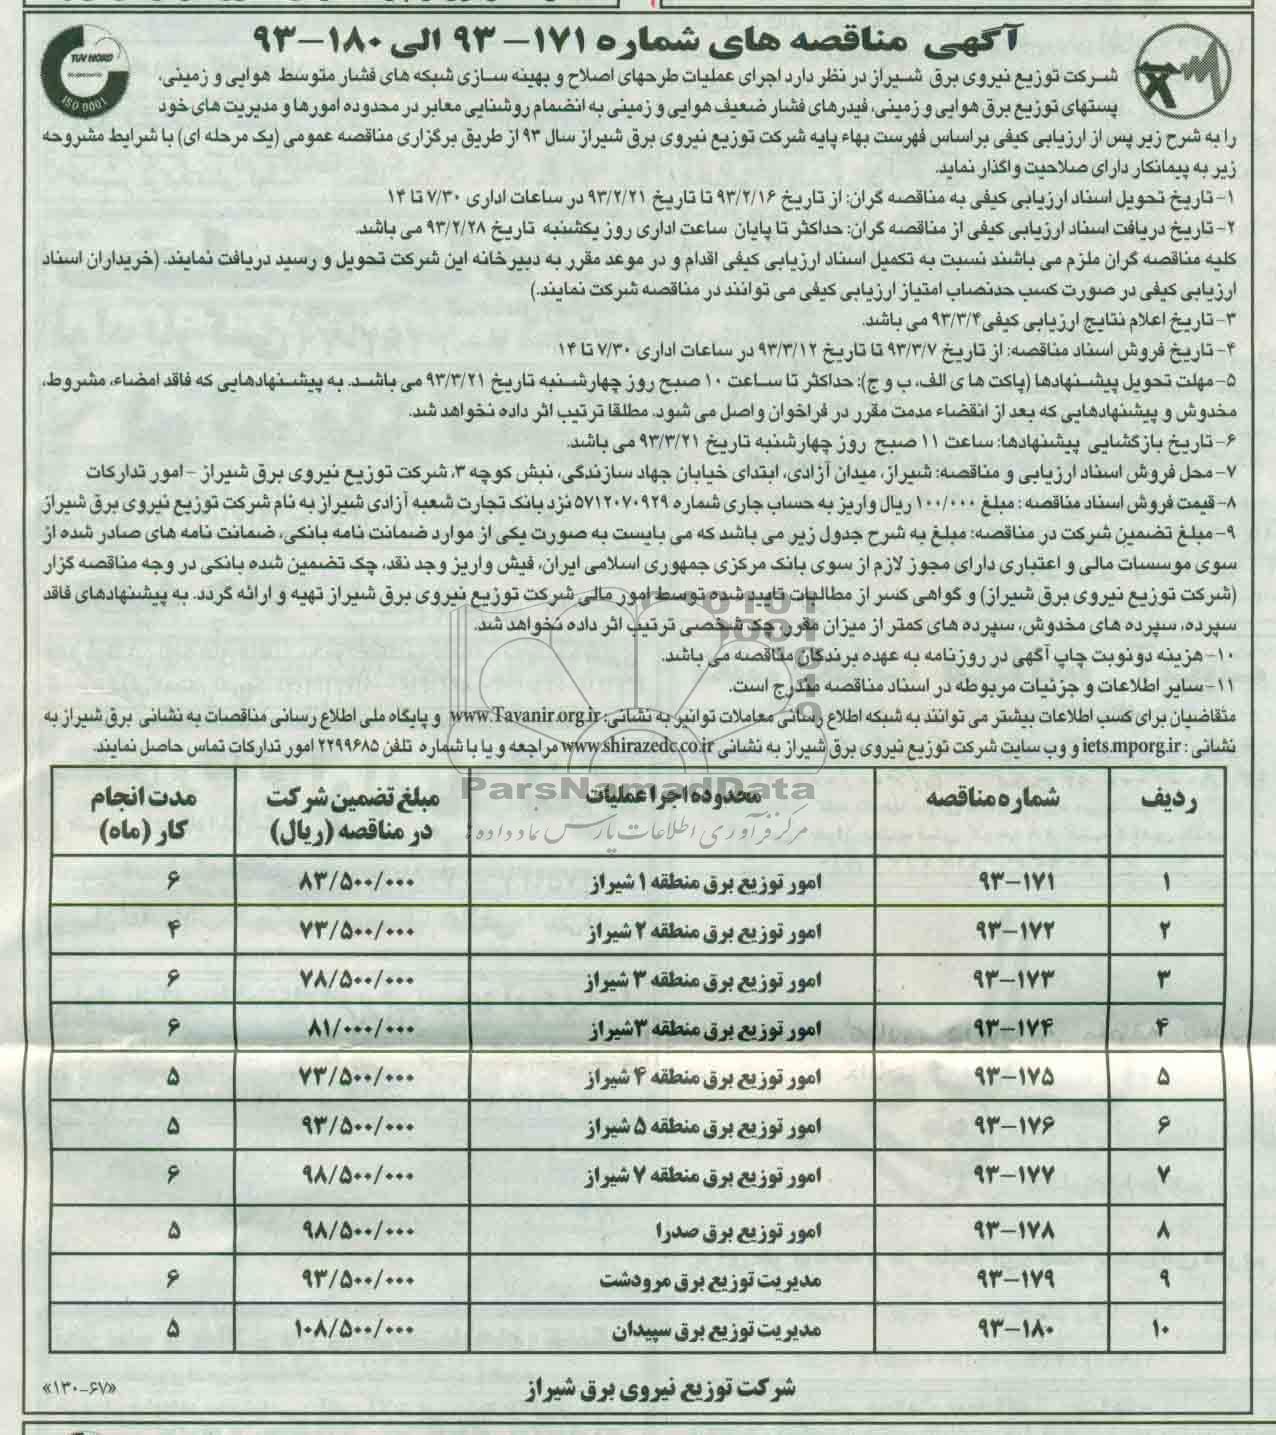 آگهی مناقصه های شماره ۱۷۱-۹۳ الی ۱۸۰-۹۳
TUV NORD
ISO 9001
شرکت توزیع نیروی برق شیراز در نظر دارد اجرای عملیات طرحهای اصلاح و بهینه سازی شبکه های فشار متوسط هوایی و زمینی،
پستهای توزیع برق هوایی و زمینی، فیدرهای فشار ضعیف هوایی و زمینی به انضمام روشنایی معابر در محدوده امورها و مدیریت های خود
را به شرح زیر پس از ارزیابی کیفی براساس فهرست بهاء پایه شرکت توزیع نیروی برق شیراز سال ۹۳ از طریق برگزاری مناقصه عمومی (یک مرحله ای) با شرایط مشروحه
زیر به پیمانکار دارای صلاحیت واگذار نماید.
۱- تاریخ تحویل اسناد ارزیابی کیفی به مناقصه گران: از تاریخ ۹۳/۲/۱۶ تا تاریخ ۹۳/۲/۲۱ در ساعات اداری ۷/۳۰ تا ۱۴
۲- تاریخ دریافت اسناد ارزیابی کیفی از مناقصه گران: حداکثر تا پایان ساعت اداری روز یکشنبه تاریخ ۹۳/۲/۲۸ می باشد.
کلیه مناقصه گران ملزم می باشند نسبت به تکمیل اسناد ارزیابی کیفی اقدام و در موعد مقرر به دبیرخانه این شرکت تحویل و رسید دریافت نمایند. (خریداران اسناد
ارزیابی کیفی در صورت کسب حدنصاب امتیاز ارزیابی کیفی می توانند در مناقصه شرکت نمایند.)
۳- تاریخ اعلام نتایج ارزیابی کیفی ۹۳/۳/۴ می باشد.
۴- تاریخ فروش اسناد مناقصه: از تاریخ ۹۳/۳/۷ تا تاریخ ۹۳/۳/۱۲ در ساعات اداری ۷/۳۰ تا ۱۴
۵- مهلت تحویل پیشنهادها (پاکت ها ی الف، ب و ج): حداکثر تا ساعت ۱۰ صبح روز چهارشنبه تاریخ ۹۳/۳/۲۱ می باشد. به پیشنهادهایی که فاقد امضاء، مشروط،
مخدوش و پیشنهادهایی که بعد از انقضاء مدمت مقرر در فراخوان واصل می شود. مطلقا ترتیب اثر داده نخواهد شد.
۶- تاریخ بازگشایی پیشنهادها: ساعت ۱۱ صبح روز چهارشنبه تاریخ ۹۳/۳/۲۱ می باشد.
۷- محل فروش اسناد ارزیابی و مناقصه: شیراز، میدان آزادی، ابتدای خیابان جهاد سازندگی، نبش کوچه ۳، شرکت توزیع نیروی برق شیراز - امور تدارکات
۸- قیمت فروش اسناد مناقصه: مبلغ ۱۰۰/۰۰۰ ریال واریز به حساب جاری شماره ۵۷۱۲۰۷۰۹۲۹ نزد بانک تجارت شعبه آزادی شیراز به نام شرکت توزیع نیروی برق شیراز
۹- مبلغ تضمین شرکت در مناقصه: مبلغ به شرح جدول زیر می باشد که می بایست به صورت یکی از موارد ضمانت نامه بانکی، ضمانت نامه های صادر شده از
سوی موسسات مالی و اعتباری دارای مجوز لازم از سوی بانک مرکزی جمهوری اسلامی ایران، فیش واریز وجد نقد، چک تضمین شده بانکی در وجه مناقصه گزار
(شرکت توزیع نیروی برق شیراز) و گواهی کسر از مطالبات تایید شده توسط امور مالی شرکت توزیع نیروی برق شیراز تهیه و ارائه گردد. به پیشنهادهای فاقد
سپرده، سپرده های مخدوش، سپرده های کمتر از میزان مقرر، چک شخصی ترتیب اثر داده نخواهد شد.
۱۰- هزینه دو نوبت چاپ آگهی در روزنامه به عهده برندگان مناقصه می باشد.
۱۱- سایر اطلاعات و جزئیات مربوطه در اسناد مناقصه مندرج است.
متقاضیان برای کسب اطلاعات بیشتر می توانند به شبکه اطلاع رسانی معاملات توانیر به نشانی: www.Tavanir.org.ir و پایگاه ملی اطلاع رسانی مناقصات به نشانی برق شیراز به
نشانی: iets.mporg.ir و وب سایت شرکت توزیع نیروی برق شیراز به نشانی www.shirazedc.co.ir مراجعه و یا با شماره تلفن ۲۲۹۹۶۸۵ امور تدارکات تماس حاصل نمایند.
ParsNamadData
مرکز فرآوری اطلاعات پارس نماد داده ها
ردیف شماره مناقصه محدوده اجرا عملیات مبلغ تضمین شرکت در مناقصه (ریال) مدت انجام کار (ماه)
۱ ۹۳-۱۷۱ امور توزیع برق منطقه ۱ شیراز ۸۳/۵۰۰/۰۰۰ ۶
۲ ۹۳-۱۷۲ امور توزیع برق منطقه ۲ شیراز ۷۳/۵۰۰/۰۰۰ ۴
۳ ۹۳-۱۷۳ امور توزیع برق منطقه ۳ شیراز ۷۸/۵۰۰/۰۰۰ ۶
۴ ۹۳-۱۷۴ امور توزیع برق منطقه ۳ شیراز ۸۱/۰۰۰/۰۰۰ ۶
۵ ۹۳-۱۷۵ امور توزیع برق منطقه ۴ شیراز ۷۳/۵۰۰/۰۰۰ ۵
۶ ۹۳-۱۷۶ امور توزیع برق منطقه ۵ شیراز ۹۳/۵۰۰/۰۰۰ ۵
۷ ۹۳-۱۷۷ امور توزیع برق منطقه ۷ شیراز ۹۸/۵۰۰/۰۰۰ ۶
۸ ۹۳-۱۷۸ امور توزیع برق صدرا ۹۸/۵۰۰/۰۰۰ ۵
۹ ۹۳-۱۷۹ مدیریت توزیع برق مرودشت ۹۳/۵۰۰/۰۰۰ ۶
۱۰ ۹۳-۱۸۰ مدیریت توزیع برق سپیدان ۱۰۸/۵۰۰/۰۰۰ ۵
شرکت توزیع نیروی برق شیراز
«۱۳۰-۶۷»